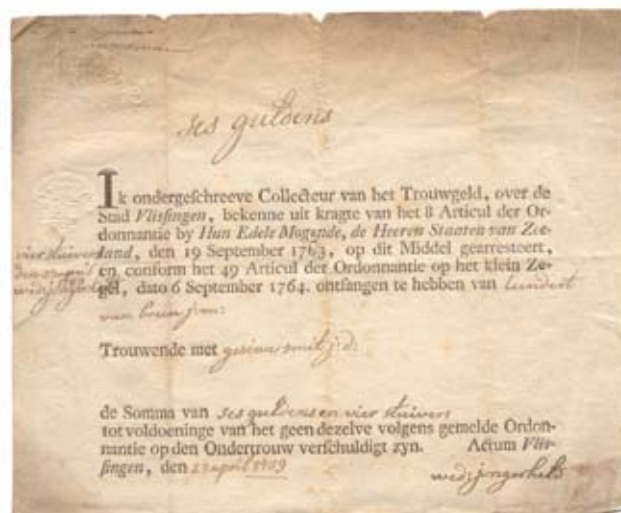 ses guldens
Ik ondergeschreeve Collecteur van het Trouwgeld, over de
Stad Vlissingen, bekenne uit kragte van het 8 Articul der Or-
donnantie by Hun Edele Mogende, de Heeren Staaten van Zee-
land, den 19 September 1763, op dit Middel gearresteert,
en conform het 49 Articul der Ordonnantie op het klein Ze-
gel, dato 6 September 1764. ontfangen te hebben van leendert
van j:m:
vier stuivers
Trouwende met gesina smit j:d:
de Somma van ses guldens en vier stuivers
tot voldoeninge van het geen dezelve volgens gemelde Ordon-
nantie op den Ondertrouw verschuldigt zyn. Actum Vlis-
singen, den april
wed: jongerhelt